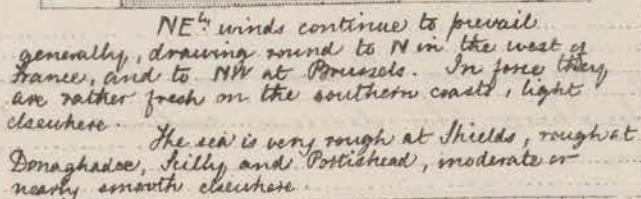 NE.ly winds continue to prevail
generally, drawing round to N in the west of
France, and to NW at Brussels. In force they
are rather fresh on the southern coasts, light
elsewhere.
The sea is very rough at Shields, rough at
Donaghadee, Scilly and Portishead, moderate or
nearly smooth elsewhere.